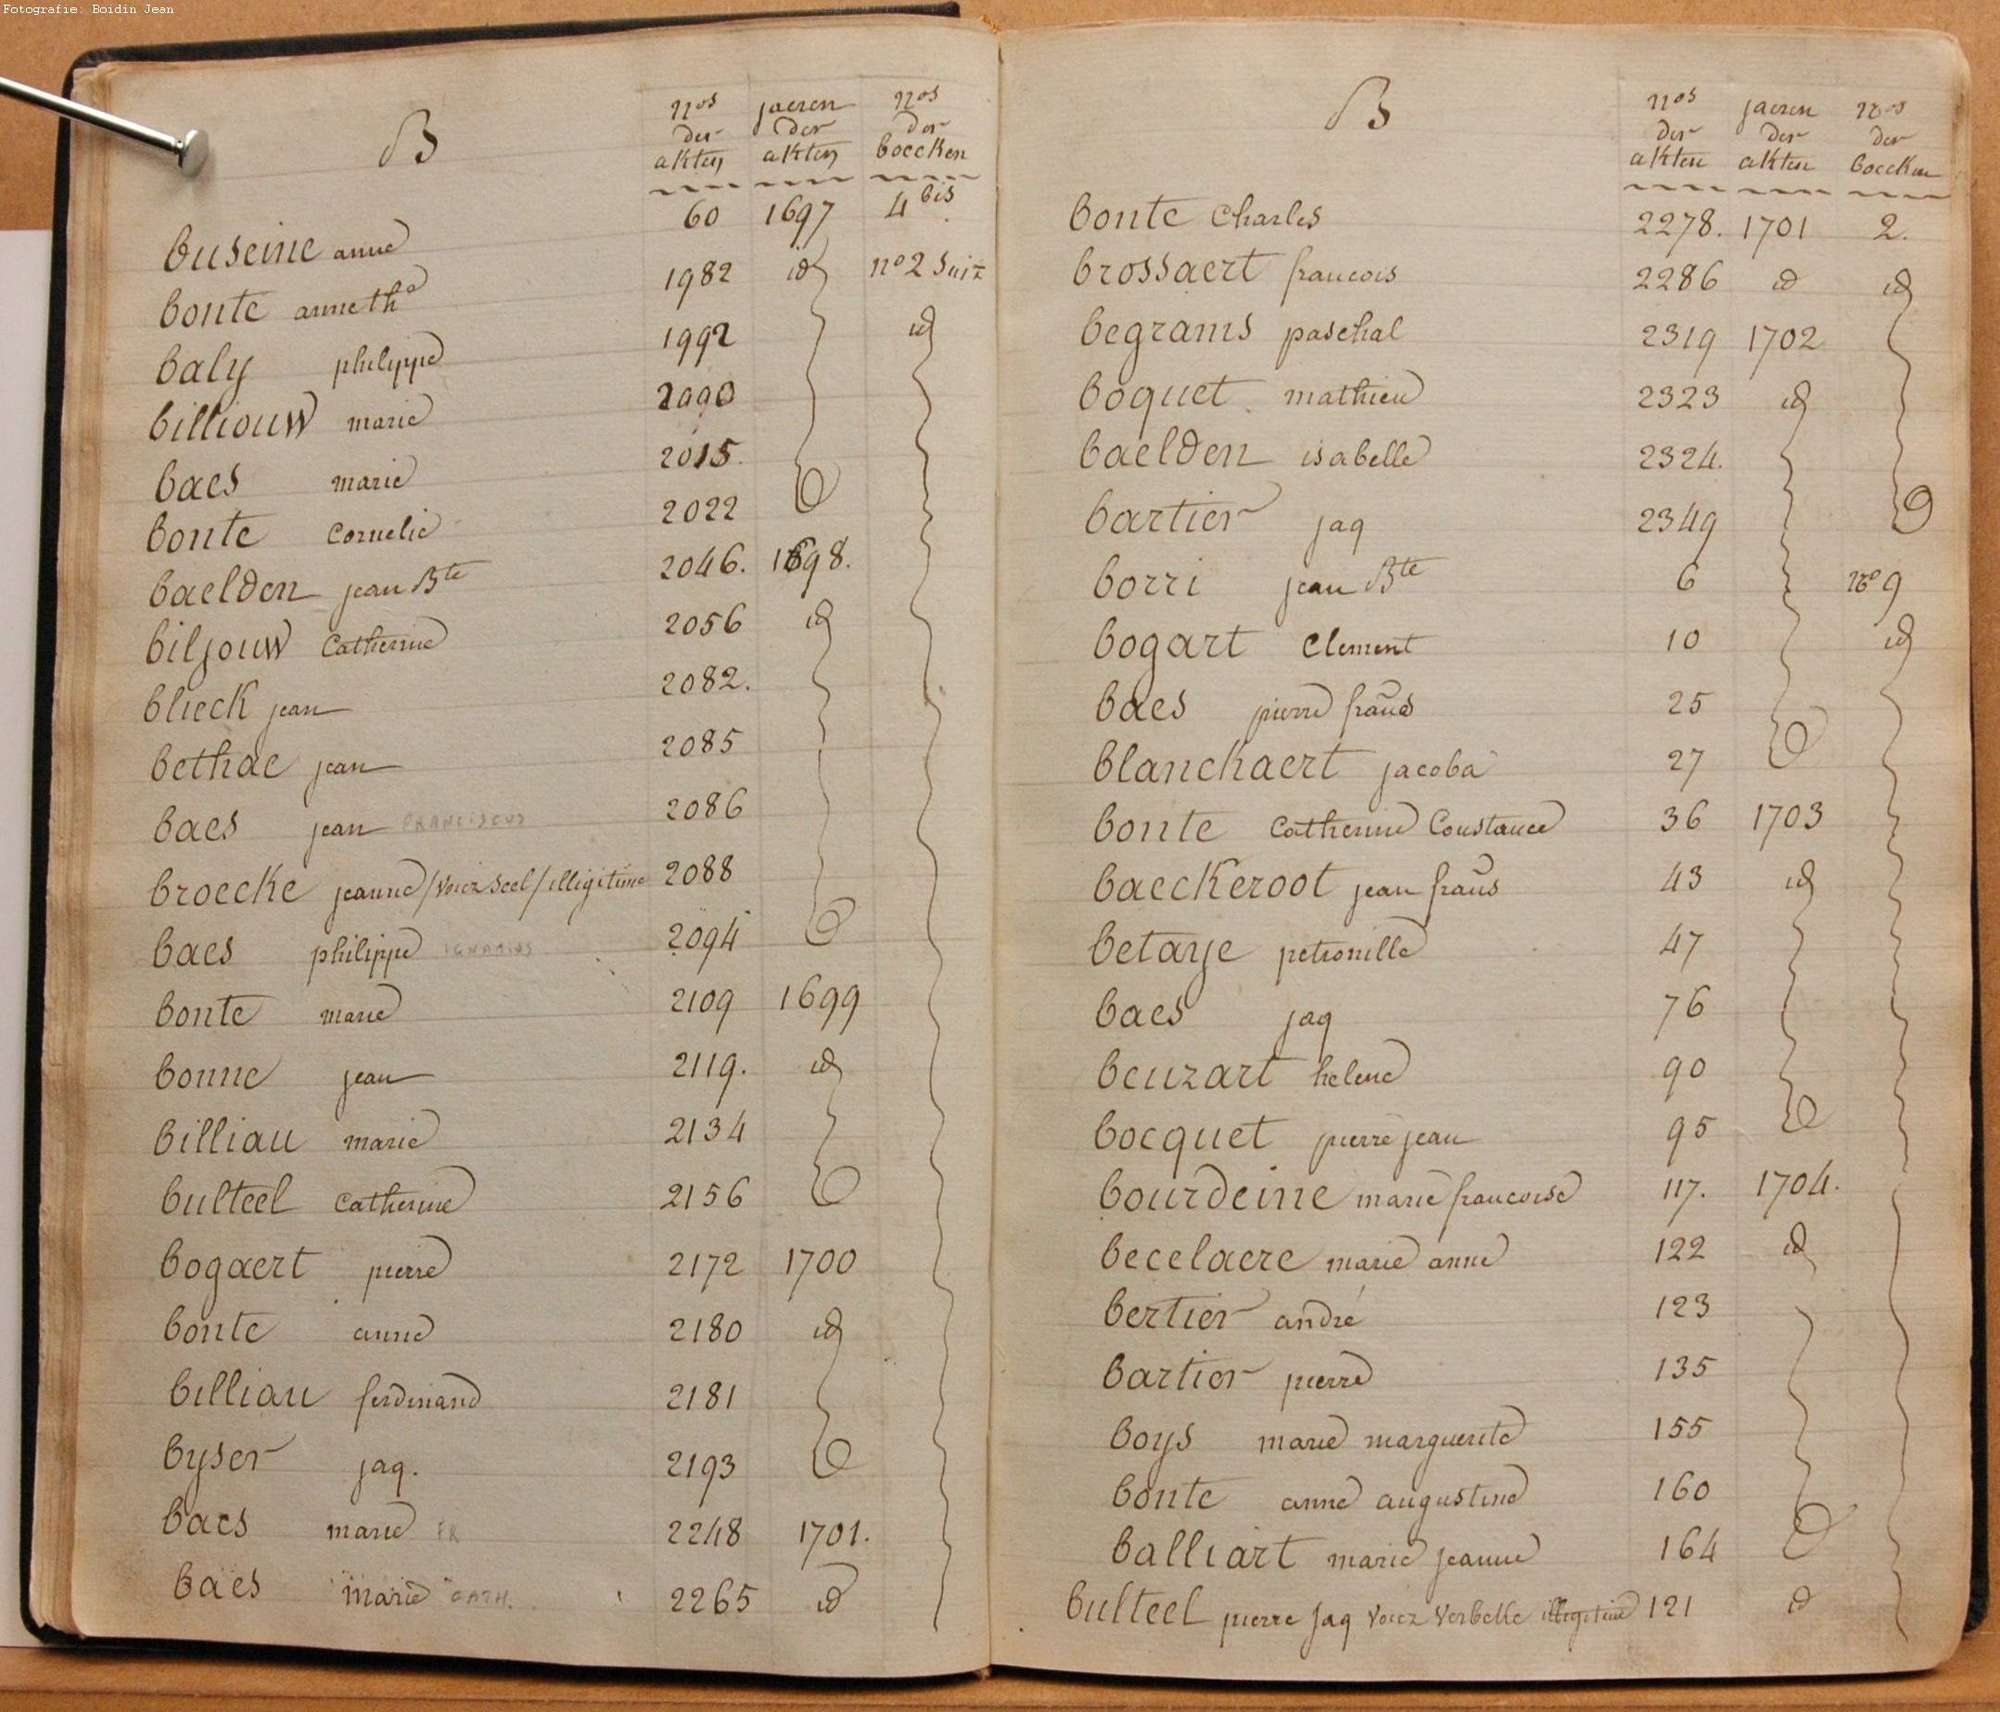 Fotografie: Boidin Jean
B
nos der akten
jaeren der akten
nos der boecken
buseine anne 60 1697 4 bis
bonte anne tha 1982 id no 2 suiz
baly philippe 1992 id
billiouw marie 2000
baes marie 2015.
bonte Cornelie 2022
baelden jean Bte 2046. 1698.
biljouw Catherine 2056 id
blieck jean 2082.
bethae jean 2085
baes jean FRANCISCUS 2086
broecke jeanne /voiez seel/ illigitime 2088
baes philippe IGNATIUS 2094
bonte marie 2109 1699
bonne jean 2119. id
billiau marie 2134
bulteel Catherine 2156
bogaert pierre 2172 1700
bonte anne 2180 id
billiau ferdinand 2181
byser jaq. 2193
baes marie FR 2248 1701.
baes marie CATH. 2265 id
B
nos der akten
jaeren der akten
nos der boecken
bonte Charles 2278. 1701 2.
brossaert francois 2286 id id
begrams paschal 2319 1702
boquet mathieu 2323 id
baelden isabelle 2324.
bartier jaq 2349
borri jean Bte 6 no 9
bogart Clement 10 id
baes pierre fraus 25
blanckaert jacoba 27
bonte Catherine Constance 36 1703
baeckeroot jean fraus 43 id
betaye petronille 47
baes jaq 76
beuzart helene 90
bocquet pierre jean 95
bourdeine marie francoise 117. 1704.
becelaere marie anne 122 id
bertier andré 123
bartier pierre 135
boys marie marguerite 155
bonte anne augustine 160
balliart marie jeanne 164
bulteel pierre jaq voiez verbeke illigitime 121 id